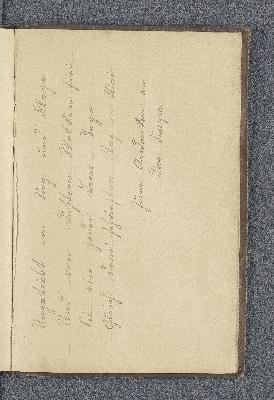 Ungetrübt von Sorg und Klage
Und von Wolken frei
Sei jeder Deiner Tage
Gleich dem schönsten Tag im Mai
Zum Andenken an